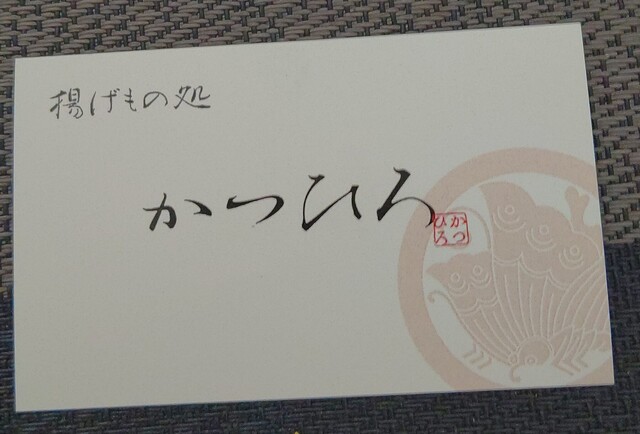 揚げもの処
かつひろ
かつ
ひろ